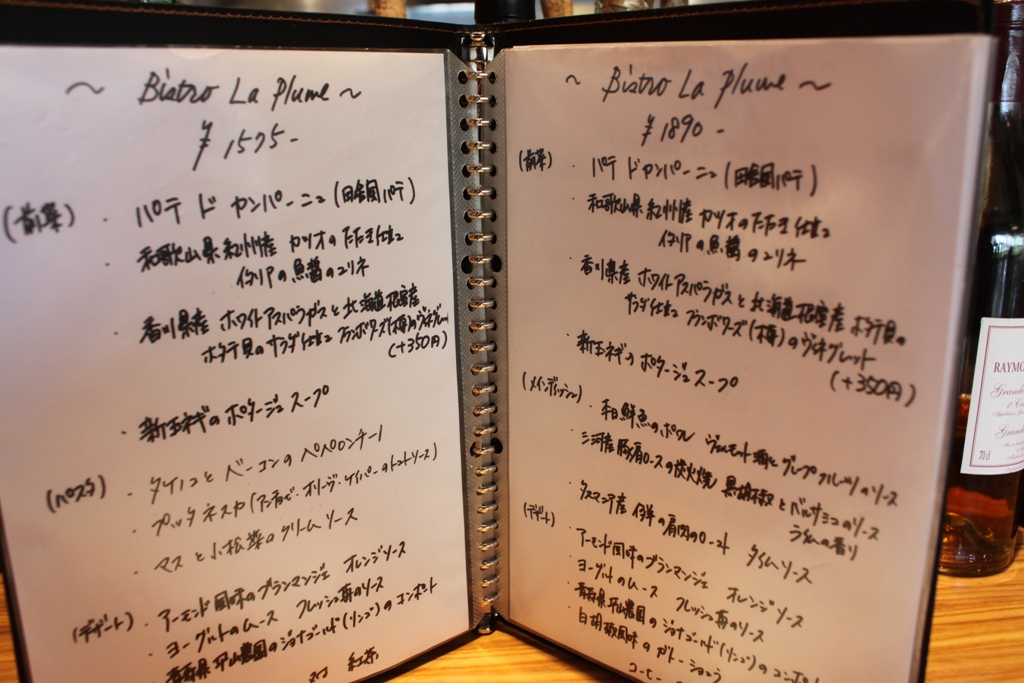 ~ Bistro La Plume ~
¥ 1575-
(前菜) ・ パテ ド カンパーニュ (田舎風パテ)
・ 和歌山県 紀州産 カツオのたたき仕立
イタリアの魚醤のジュリネ
・ 香川県産 ホワイトアスパラガスと北海道 産
ホタテ貝のサラダ仕立 フランボワーズ(樽)のヴィネグレット
(+350円)
・ 新玉ネギのポタージュスープ
(パスタ) ・ タケノコとベーコンのペペロンチーノ
・ プッタネスカ(アンチョビ・オリーブ・ケイパーのトマトソース)
・ マスと小松菜のクリームソース
(デザート) ・ アーモンド風味のブランマンジェ オレンジソース
・ ヨーグルトのムース フレッシュ苺のソース
・ 青森県平山農園のジョナゴールド(リンゴ)のコンポート
紅茶
~ Bistro La Plume ~
¥ 1890-
(前菜) ・ パテ ド カンパーニュ (田舎風パテ)
・ 和歌山県 紀州産 カツオのたたき仕立
イタリアの魚醤のジュリネ
・ 香川県産 ホワイトアスパラガスと北海道 産 ホタテ貝の
サラダ仕立 フランボワーズ(樽)のヴィネグレット
(+350円)
・ 新玉ネギのポタージュスープ
(メインディッシュ) ・ 本日鮮魚のポワレ ヴェルモット酒とグレープフルーツのソース
・ 三河産豚肩ロースの炭火焼 黒胡椒とバルサミコのソース
ライムの香り
・ タスマニア産 仔羊の肩肉のロースト タイムソース
(デザート) ・ アーモンド風味のブランマンジェ オレンジソース
・ ヨーグルトのムース フレッシュ苺のソース
・ 青森県平山農園のジョナゴールド(リンゴ)のコンポート
・ 白胡椒風味のガトーショコラ
コーヒー
RAYMO
Grande
70cl